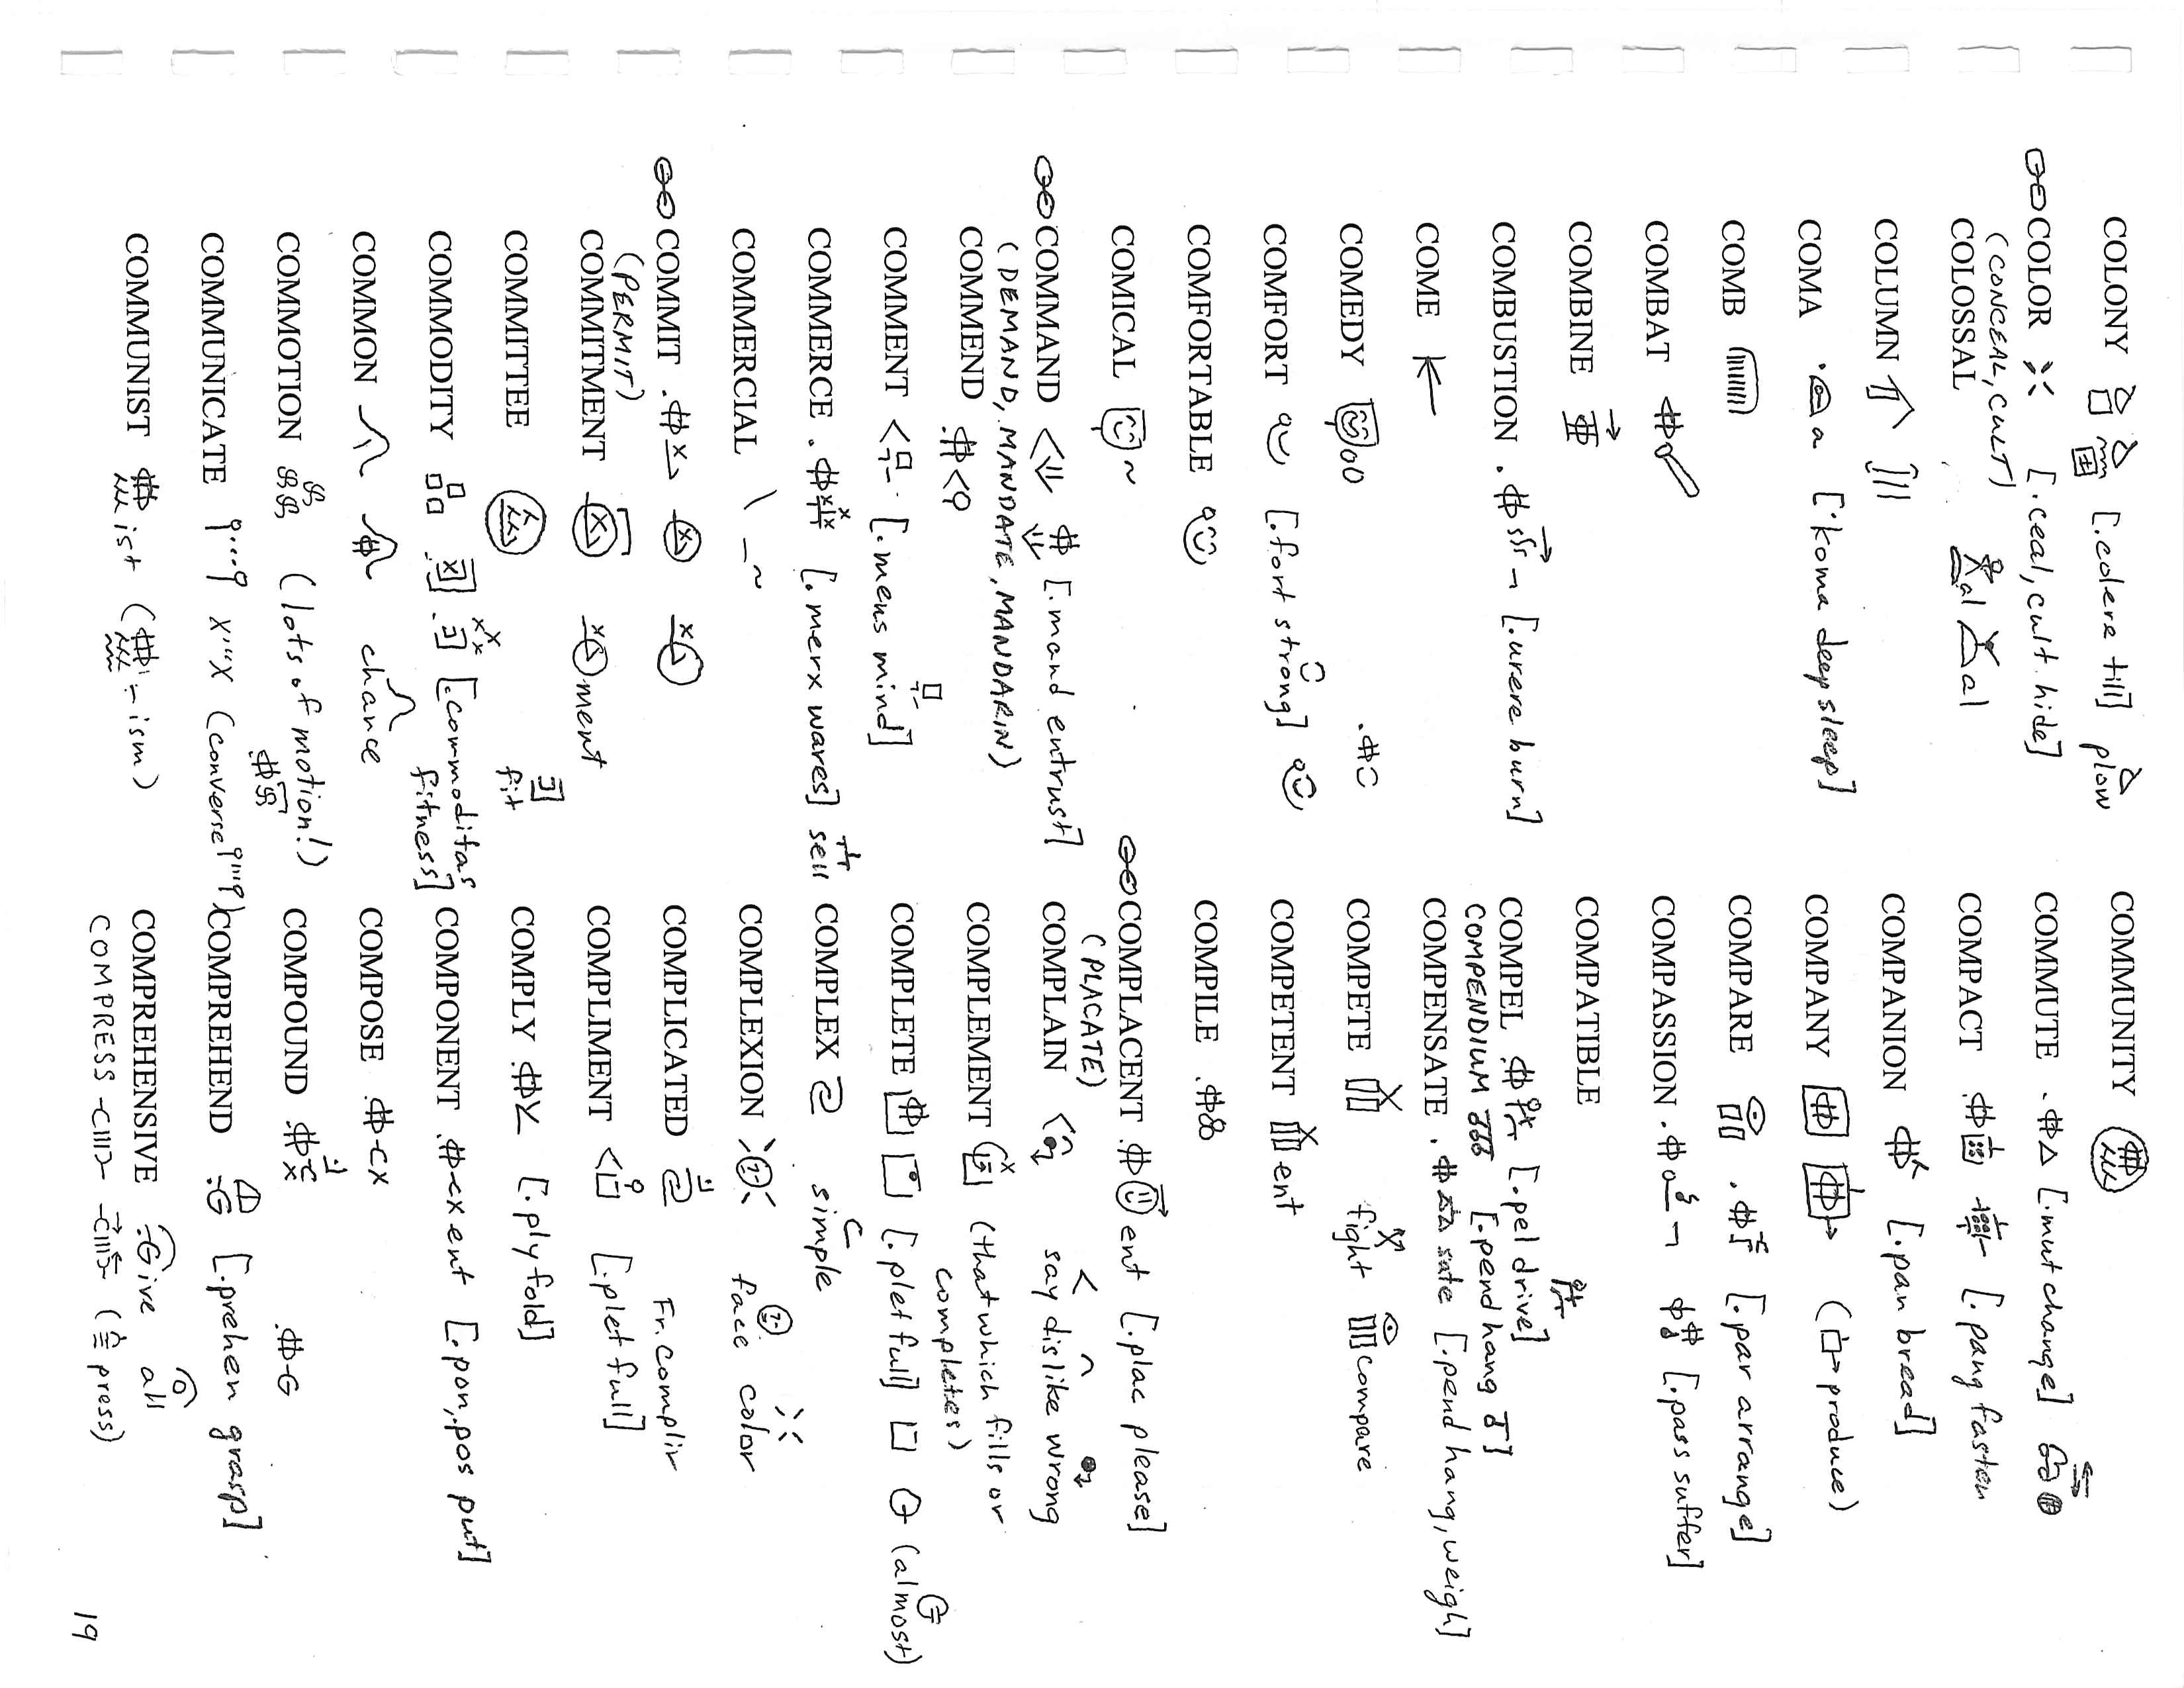 COLONY [.colere till] plow
COLOR [.ceal, cult. hide]
(CONCEAL, CULT)
COLOSSAL al al
COLUMN
COMA a [.koma deep sleep]
COMB
COMBAT
COMBINE
COMBUSTION [.urere burn]
COME
COMEDY
COMFORT [.fort strong]
COMFORTABLE
COMICAL
COMMAND [.mand entrust]
(DEMAND, MANDATE, MANDARIN)
COMMEND
COMMENT [.mens mind]
COMMERCE [.merx wares] sell
COMMERCIAL
COMMIT
COMMITMENT ment
(PERMIT)
COMMITTEE fit
COMMODITY [commoditas
fitness]
COMMON chance
COMMOTION (lots of motion!)
COMMUNICATE (converse)
COMMUNIST ist (-ism)
COMMUNITY
COMMUTE [.mut change]
COMPACT [.pang fasten
COMPANION [.pan bread]
COMPANY (produce)
COMPARE [.par arrange]
COMPASSION [.pass suffer]
COMPATIBLE
COMPEL [.pel drive]
COMPENDIUM [.pend hang]
COMPENSATE sate [.pend hang, weigh]
COMPETE fight compare
COMPETENT ent
COMPILE
COMPLACENT ent [.plac please]
(PLACATE)
COMPLAIN say dislike wrong
COMPLEMENT (that which fills or
completes)
COMPLETE [.plet full] (almost)
COMPLEX simple
COMPLEXION face color
COMPLICATED Fr. complir
COMPLIMENT [.plet full]
COMPLY [.ply fold]
COMPONENT ent [.pon, .pos put]
COMPOSE
COMPOUND
COMPREHEND [.prehen grasp]
COMPREHENSIVE Give all
COMPRESS (press)
19